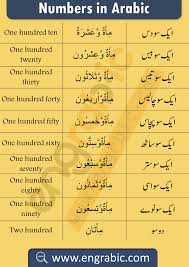 Numbers in Arabic
One hundred ten مِأَةٌ وَعَشْرَةٌ ایک سو دس
One hundred twenty مِأَةٌ وَعِشْرُوْنَ ایک سو بیس
One hundred thirty مِأَةٌ وَثَلَاثُوْنَ ایک سو تیس
One hundred forty مِأَةٌ وَأَرْبَعُوْنَ ایک سو چالیس
One hundred fifty مِأَةٌ وَخَمْسُوْنَ ایک سو پچاس
One hundred sixty مِأَةٌ وَسِتُّوْنَ ایک سو ساٹھ
One hundred seventy مِأَةٌ وَسَبْعُوْنَ ایک سو ستر
One hundred eighty مِأَةٌ وَثَمَانُوْنَ ایک سو اسی
One hundred ninety مِأَةٌ وَتِسْعُوْنَ ایک سو نوے
Two hundred مِأَتَانِ دو سو
www.engrabic.com